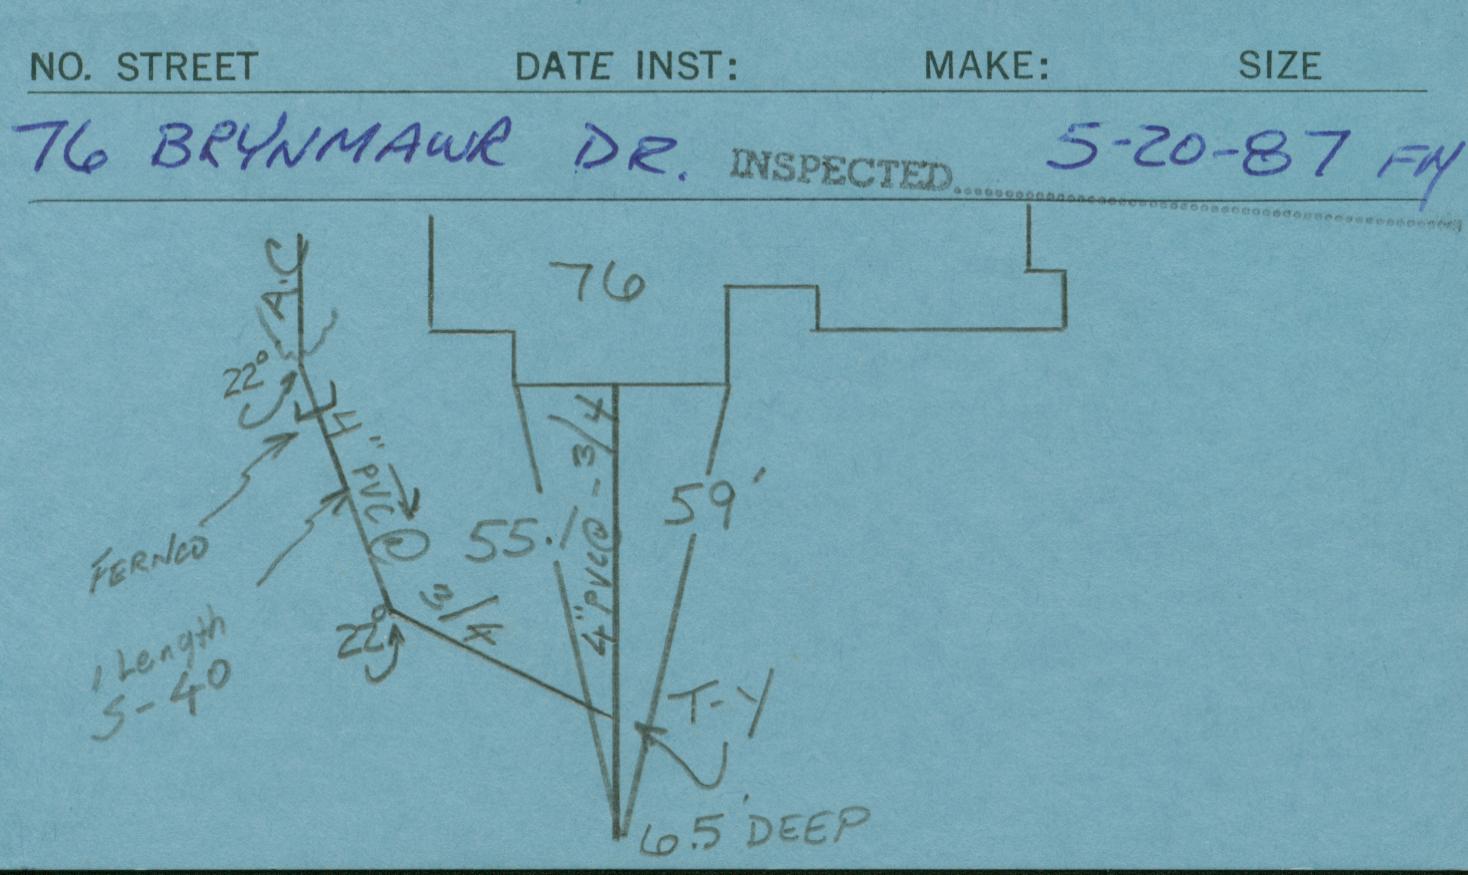 NO. STREET DATE INST: MAKE: SIZE
76 BRYNMAWR DR. INSPECTED 5-20-87 FM
A.C
76
22°
4" PVC @
3/4
FERNCO
1 Length
S-40
22°
55.1
4" PVC @ - 3/4
59'
T-Y
6.5' DEEP